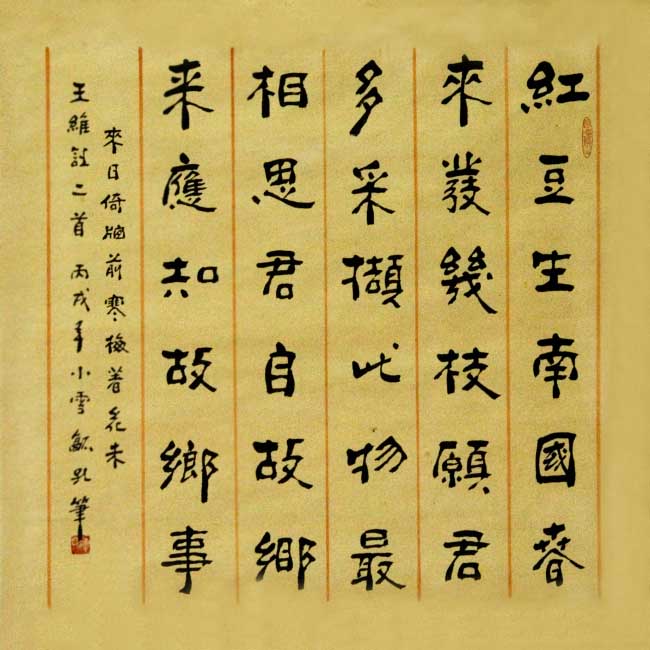 紅豆生南國春
來發幾枝願君
多采擷此物最
相思君自故鄉
来應知故鄉事
來日倚窗前寒梅著花未
王維詩二首 丙戌年小雪 筆